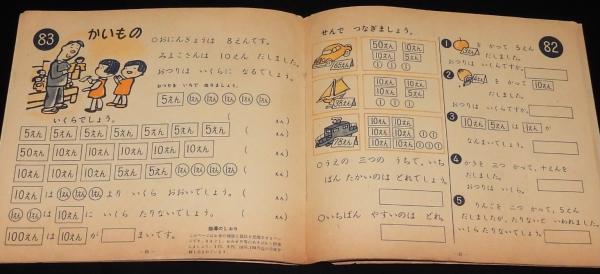 83 かいもの
○おにんぎょうは 8えんです。
みよこさんは 10えん だしました。
おつりは いくらに なるでしょう。
おつりを いろで ぬりましょう。
5えん 1えん 1えん 1えん 1えん 1えん
いくらでしょう。
5えん 5えん 5えん 5えん 5えん 5えん 5えん ( えん)
50えん 10えん 10えん 10えん 10えん ( えん)
10えん 10えん 10えん 5えん 1えん 1えん 1えん ( えん)
10えん は 1えん 1えん 1えん より いくら おおいでしょう。( えん)
1えん 1えん 1えん は 10えん に いくら たりないでしょう。( えん)
100えん は 10えん が まいです。
指導のしおり
せんで つなぎましょう。
50えん 10えん
10えん 5えん
10えん 10えん
10えん 5えん
10えん 10えん
10えん 10えん
10えん 5えん
○うえの 三つの うちで、いち
ばん たかいのは どれでしょう。
○いちばん やすいのは どれ。
82
1 を かって 5えん
だしました。
おつりは いくらですか。
2 を かって 10えん
だしました。
おつりは いくらですか。
3 10えん 5えん は 1えん が
なんまいでしょう。
4 かきを 三つ かって、十えんを
だしました。
おつりは いくら。
5 りんごを 二つ かって、5えん
だしましたが、たりないと いわれました。
いくら たりないでしょう。